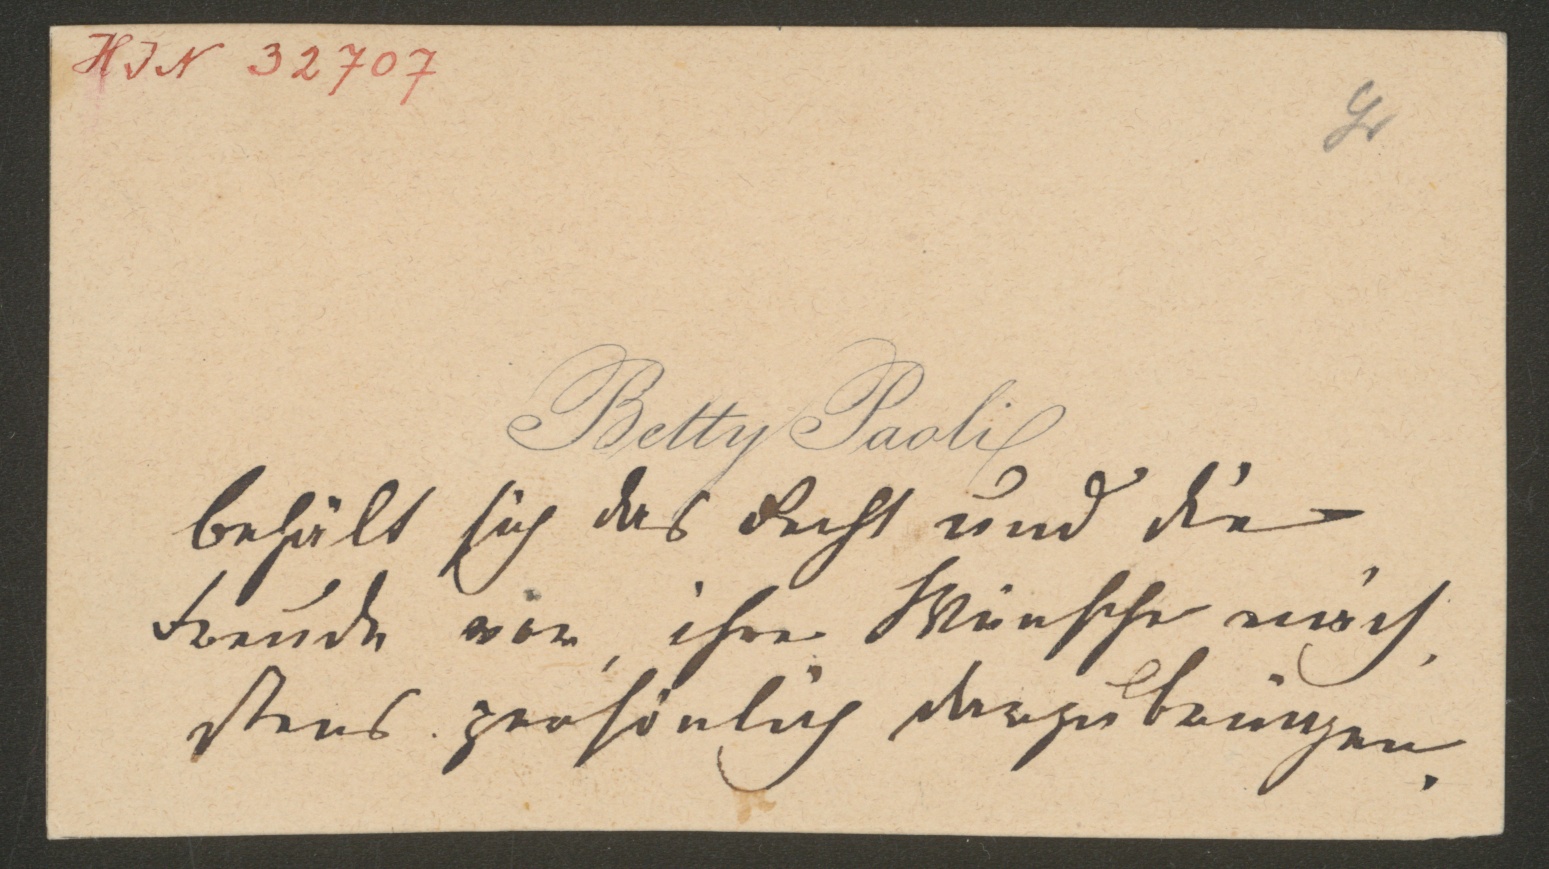 HIN 32707
Betty Paoli
behält sich das Recht und die
Freude vor, ihre Wünsche näch,
stens persönlich darzubringen.